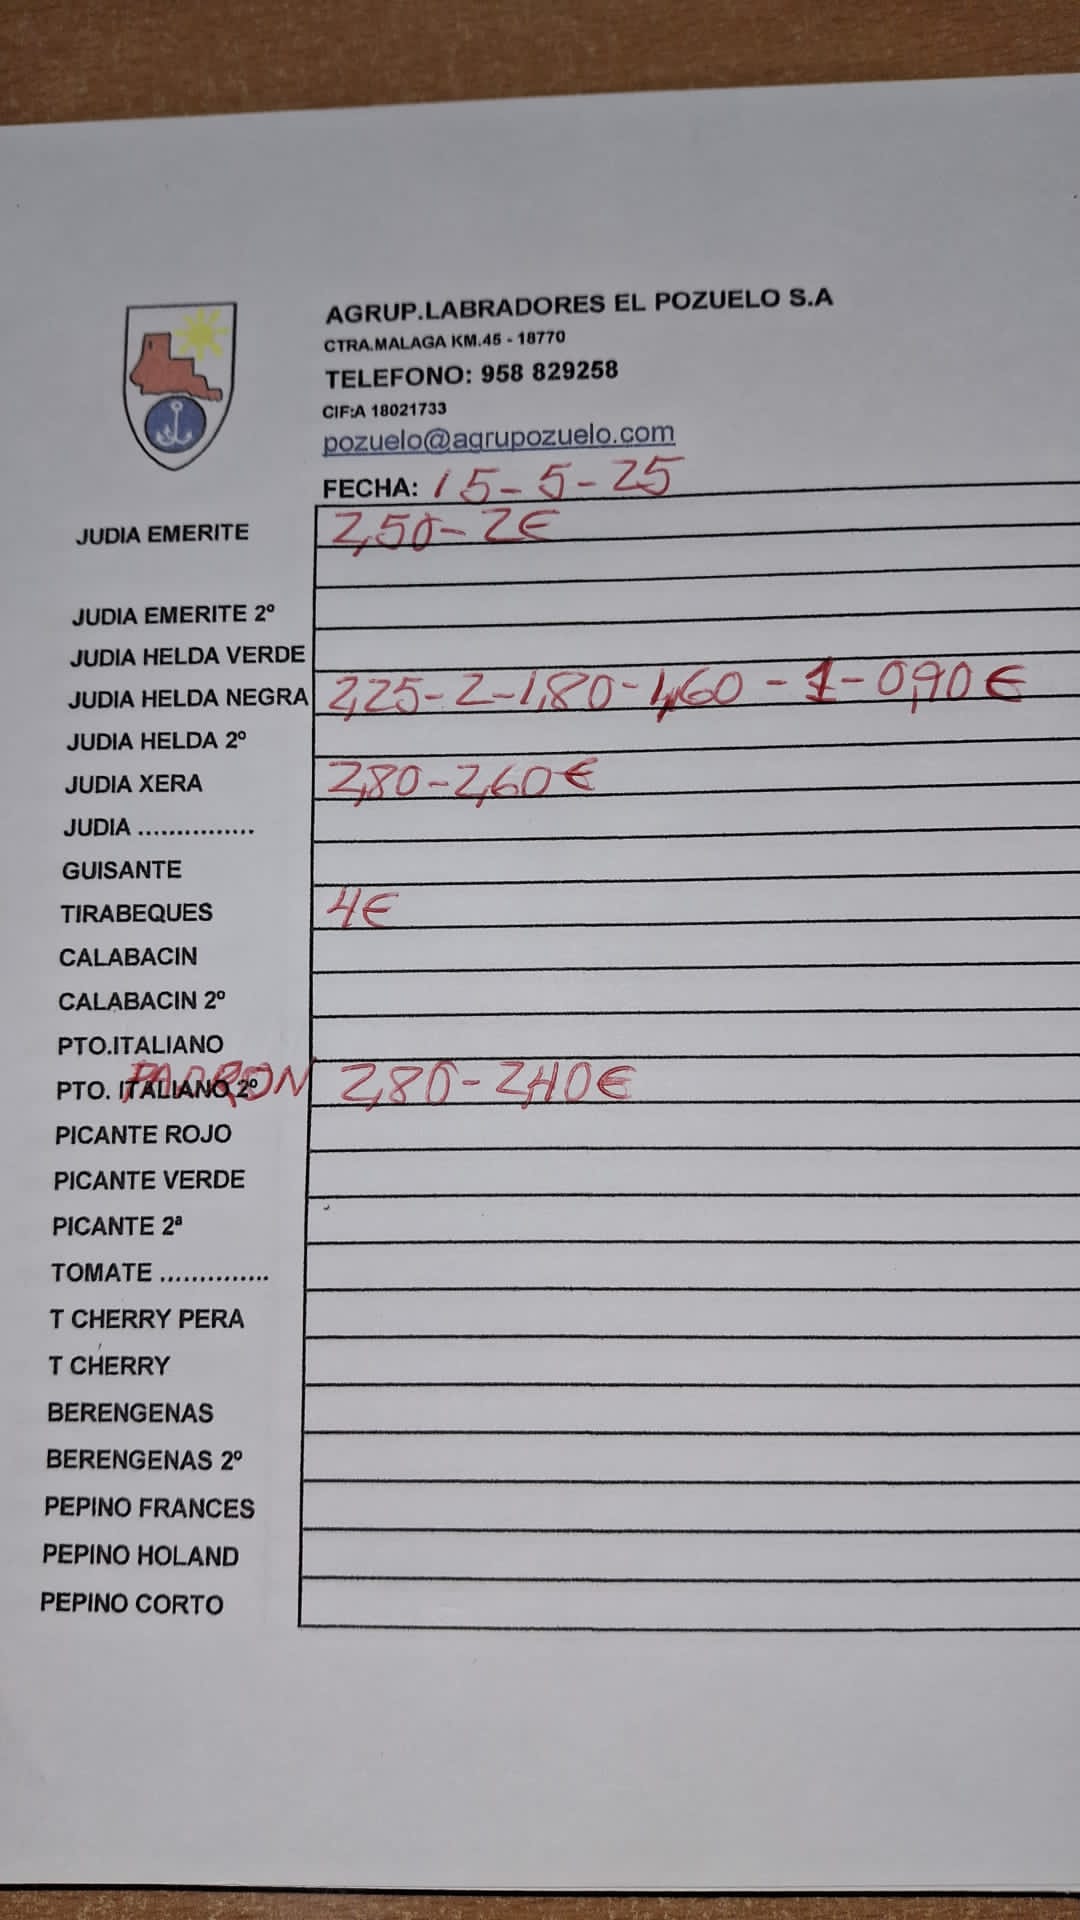 AGRUP.LABRADORES EL POZUELO S.A
CTRA.MALAGA KM.45 - 18770
TELEFONO: 958 829258
CIF:A 18021733
pozuelo@agrupozuelo.com
FECHA: 15-5-25
JUDIA EMERITE 2,50-2€
JUDIA EMERITE 2º
JUDIA HELDA VERDE
JUDIA HELDA NEGRA 2,25-2-1,80-1,60-1-0,90€
JUDIA HELDA 2º
JUDIA XERA 2,80-2,60€
JUDIA ...............
GUISANTE
TIRABEQUES 4€
CALABACIN
CALABACIN 2º
PTO.ITALIANO
PTO. ITALIANO 2º PADRON 2,80-2,40€
PICANTE ROJO
PICANTE VERDE
PICANTE 2ª
TOMATE ..............
T CHERRY PERA
T CHERRY
BERENGENAS
BERENGENAS 2º
PEPINO FRANCES
PEPINO HOLAND
PEPINO CORTO